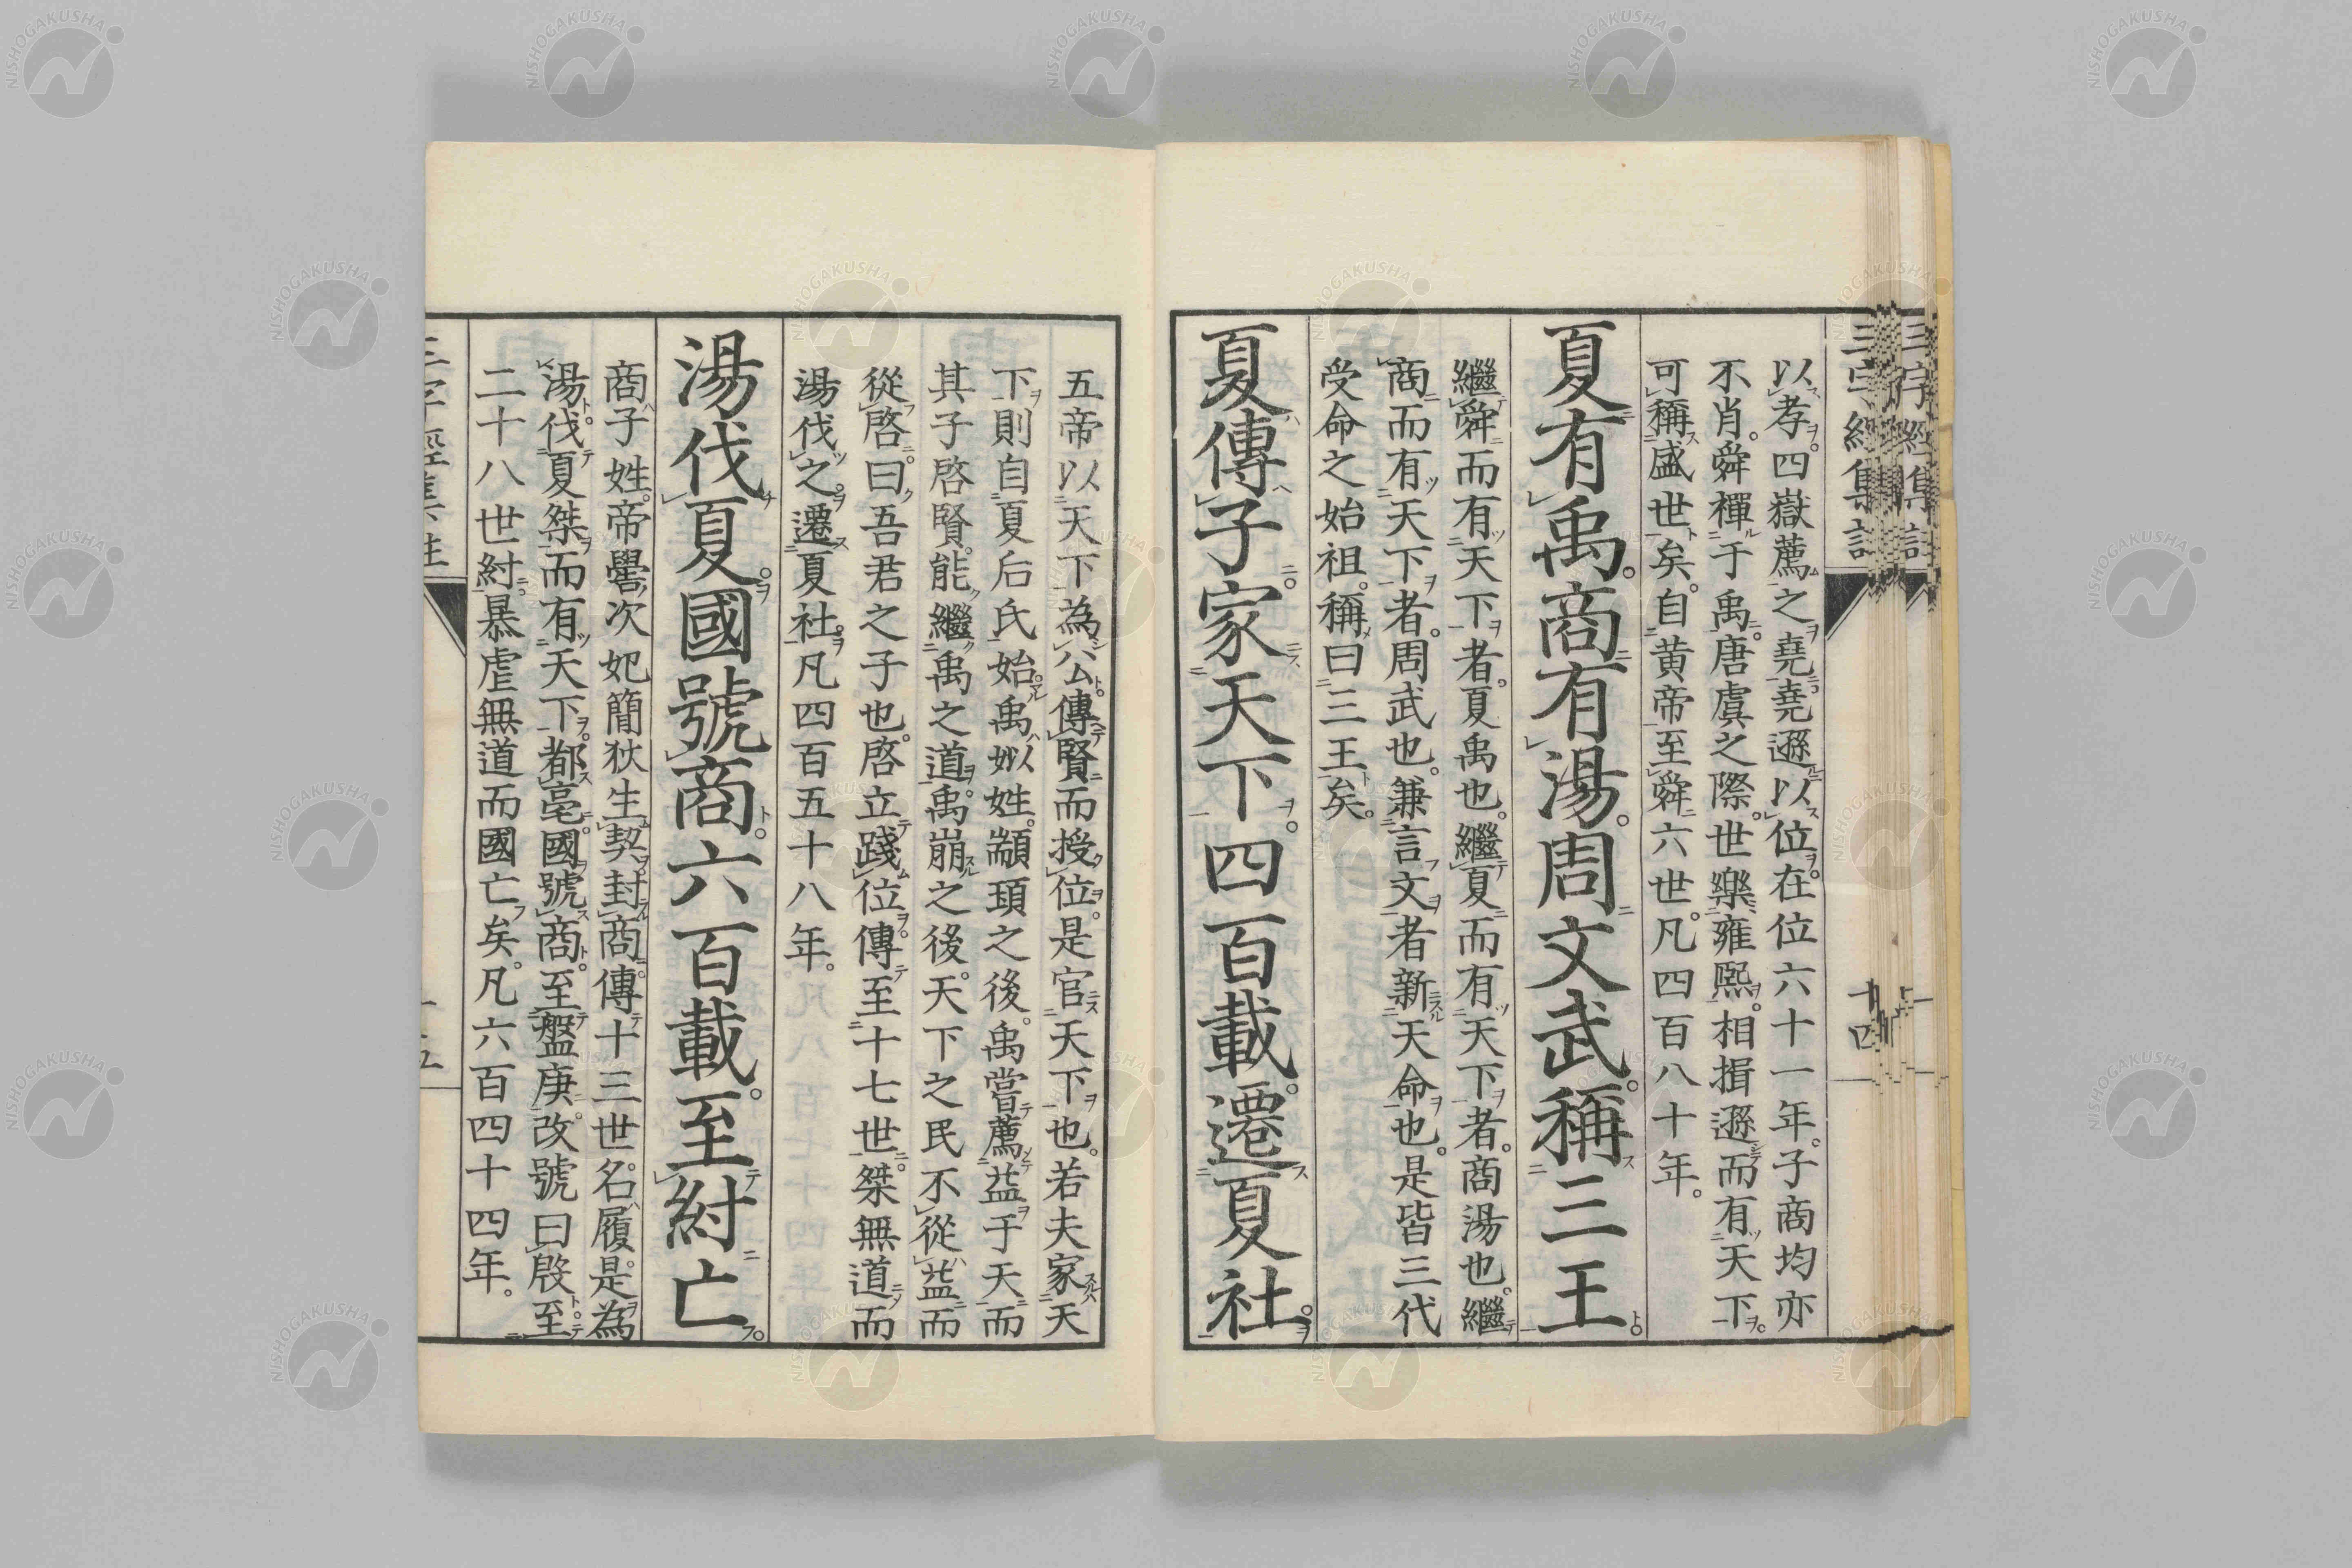 三字經集註
十四
以孝。四嶽薦之堯。堯遜以位。在位六十一年。子商均亦
不肖。舜禪于禹。唐虞之際。世樂雍熙。相揖遜而有天下。
可稱盛世矣。自黃帝至舜六世。凡四百八十年。
夏有禹。商有湯。周文武。稱三王。
繼舜而有天下者。夏禹也。繼夏而有天下者。商湯也。繼
商而有天下者。周武也。兼言文者新天命也。是皆三代
受命之始祖。稱曰三王矣。
夏傳子。家天下。四百載。遷夏社。
五帝以天下為公。傳賢而授位。是官天下也。若夫家天
下。則自夏后氏始。禹姒姓。顓頊之後。禹嘗薦益于天。而
其子啓賢。能繼禹之道。禹崩之後。天下之民不從益而
從啓。曰。吾君之子也。啓立踐位。傳至十七世。桀無道。而
湯伐之。遷夏社。凡四百五十八年。
湯伐夏。國號商。六百載。至紂亡。
商子姓。帝嚳次妃簡狄生契。封商。傳十三世。名履。是為
湯。伐夏桀而有天下。都亳。國號商。至盤庚。改號曰殷。至
二十八世紂。暴虐無道而國亡矣。凡六百四十四年。
三字經集註
十五
NISHOGAKUSHA